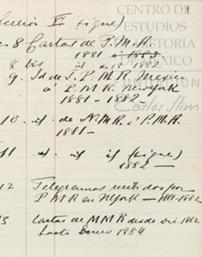 CENTRO DE
ESTUDIOS
HISTORIA
DE MÉXICO
(sigue)
8 Cartas de P.M.R.
1881 á 1883
8 bis id id 1882
9. Id de J. P. M. R. Mexico
á P. M. R. New York
1881 - 1882 -
Carlos Slim
10. id. de N. M R. á P. M. R.
1881 -
11 id. id (sigue)
1882 -
12 Telegramas recibidos por
P M R en N York - 1881-1882
13 Cartas de M M R desde Dic. 1882
hasta Enero 1884